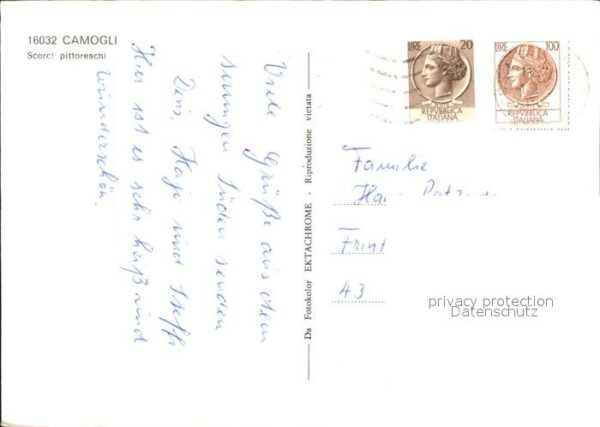 16032 CAMOGLI
Scorci pittoreschi
Viele Grüße aus dem
sonnigen Süden senden
Hajo und Steffi
Hier ist es sehr heiß und
wunderschön.
Da Fotokolor EKTACHROME - Riproduzione vietata
LIRE 20
REPVBBLICA
ITALIANA
LIRE 100
REPVBBLICA
ITALIANA
Familie
43
privacy protection
Datenschutz